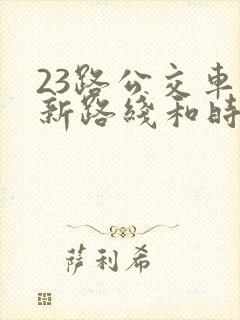 23路公交車
新路綫和時
萨利希